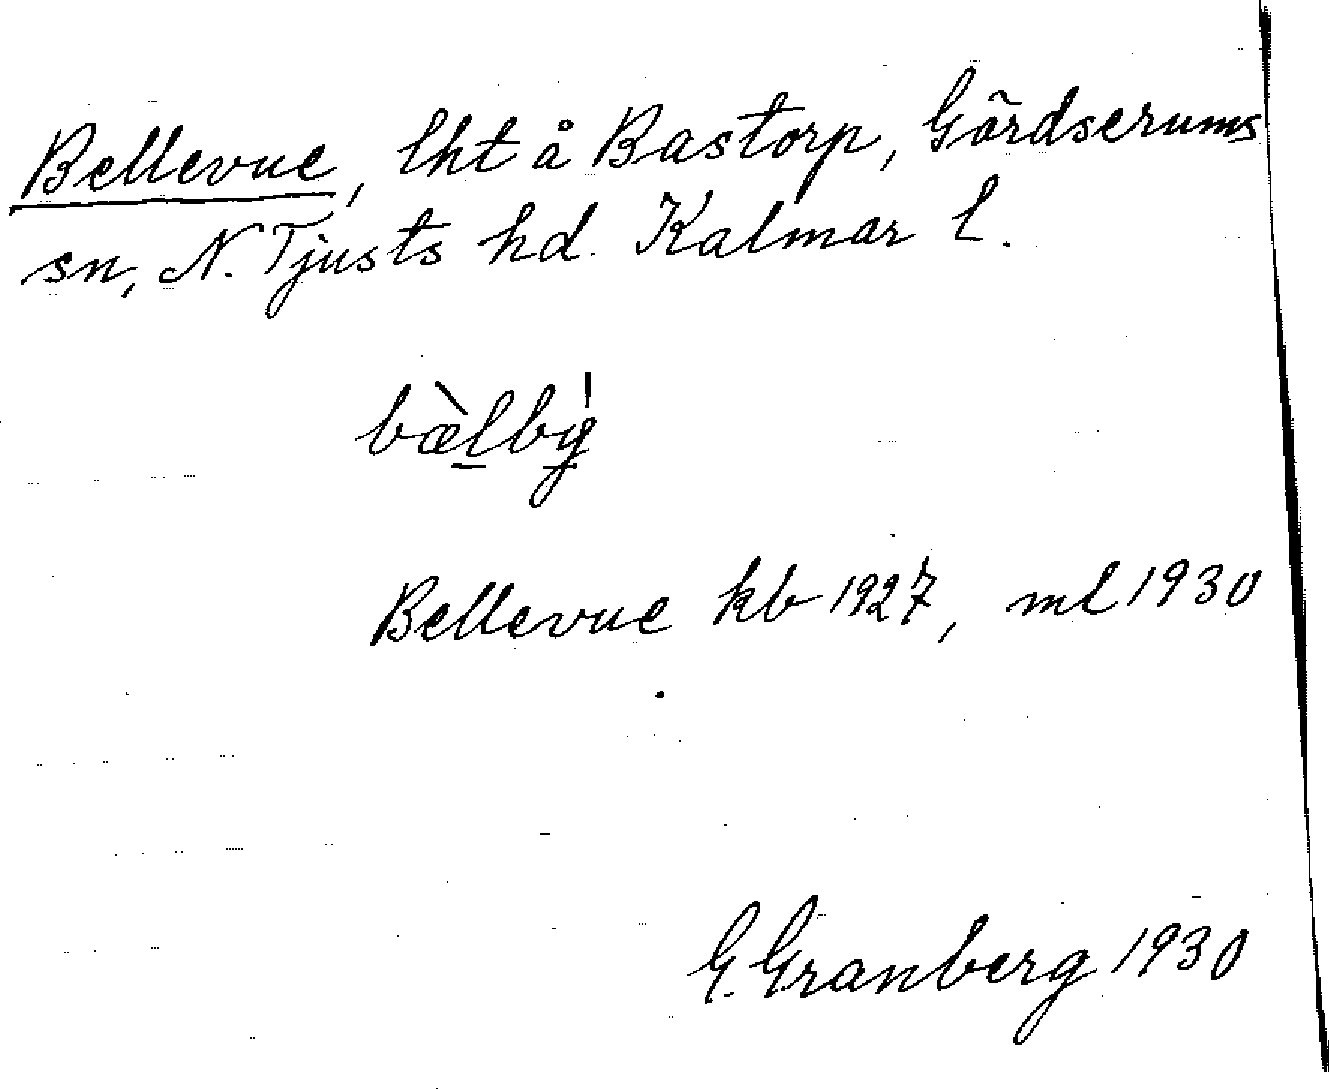 Bellevue, lht å Bastorp, Gärdserums
sn, N. Tjusts hd. Kalmar l.
bæ̀lbý
Bellevue kb 1927, ml 1930
G. Granberg 1930